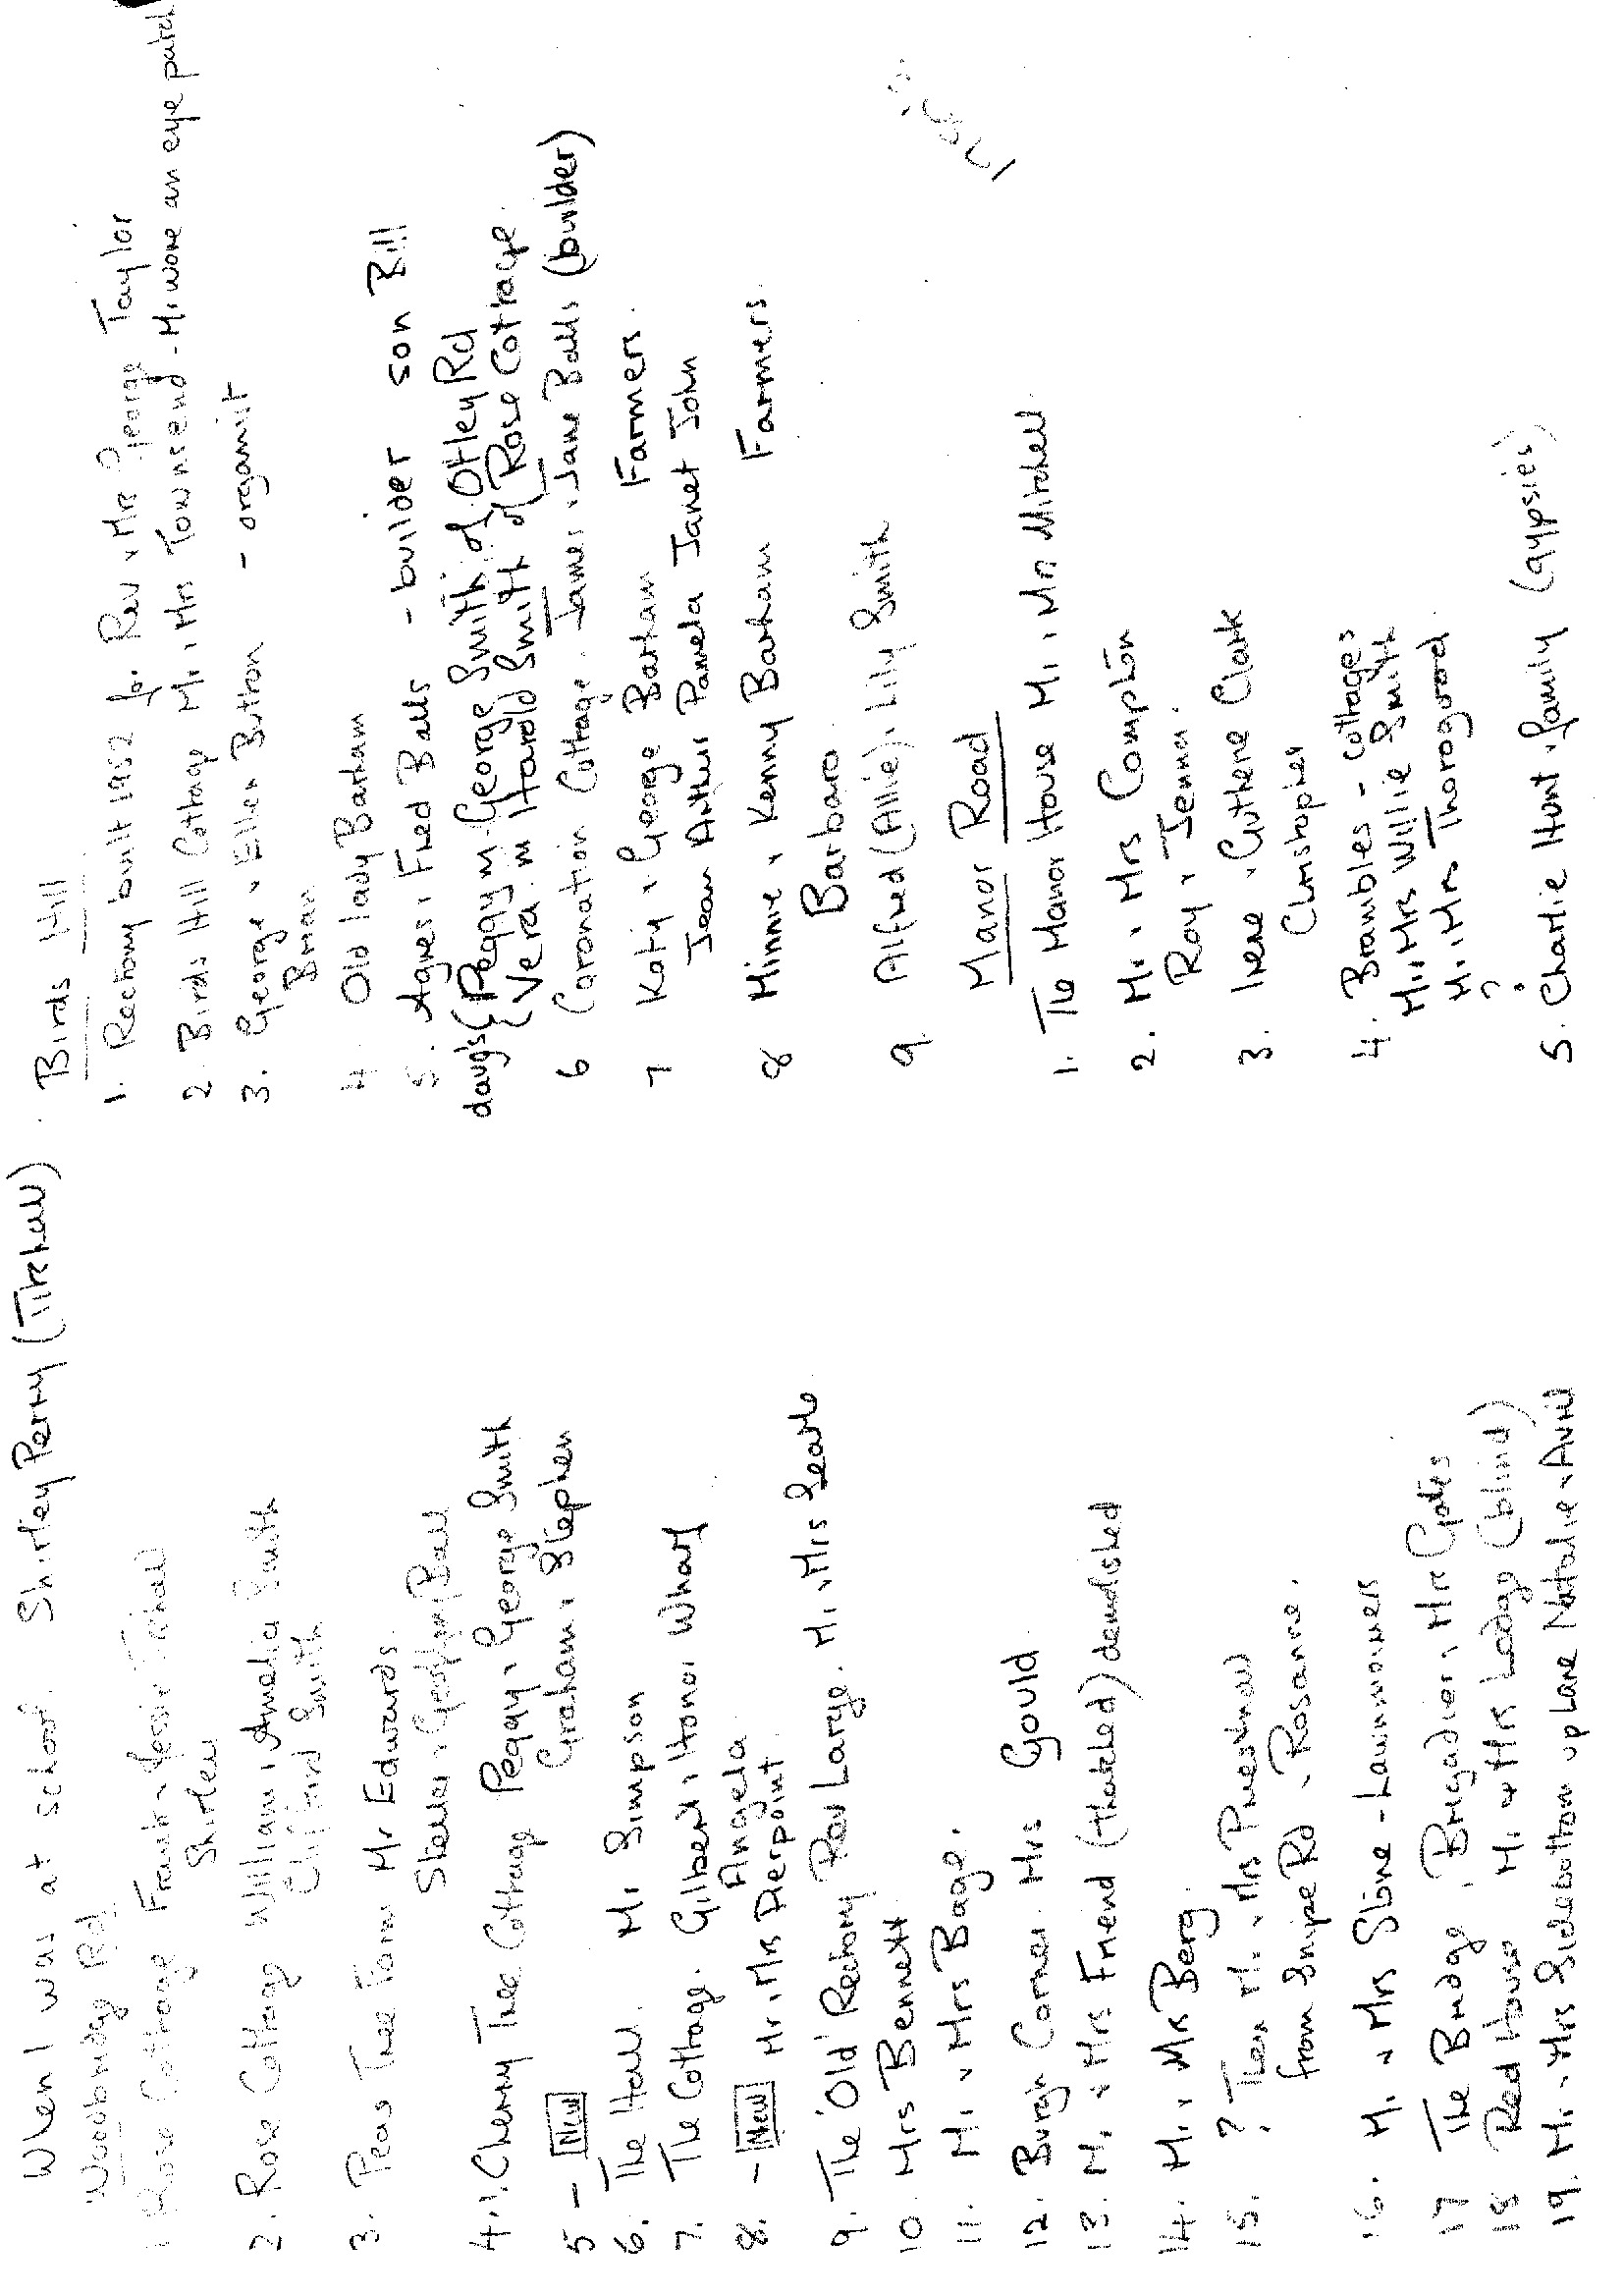 When I was at school. Shirley Perry (Tricker)
Woodbridge Rd
1 Rose Cottage Frank & Jessie
Shirley
2. Rose Cottage William & Amelia Smith
Clifford Smith
3. Pear Tree Farm Mr Edwards.
Stella & Geoffrey Ball
4. Cherry Tree Cottage Peggy & George Smith
Graham & Stephen
5 - New
6. The Hall. Mr Simpson
7. The Cottage. Gilbert & Honor Wharf
Angela
8. - New Mr & Mrs Pierpoint.
9. The 'Old' Rectory Rev Large. Mr & Mrs Searle
10. Mrs Bennett
11. Mr & Mrs Bage.
12. Burgh Corner Mrs Gould
13. Mr & Mrs Friend (thatched) demolished
14. Mr & Mrs Berg.
15. ? Then Mr & Mrs
from Snipe Rd & Rosanne.
16. Mr & Mrs Stone - Lawnmowers
17 The Bridge, Brigadier & Mrs
18 Red House Mr & Mrs Lodge (blind)
19. Mr & Mrs Sidebottom up lane Natalie & Avril
Birds Hill
1. Rectory built 1952 for Rev & Mrs George Taylor
2 Birds Hill Cottage Mr & Mrs Townsend - Mr wore an eye patch
3. George & Ellen Button - organist
Brian
4. Old lady Barham
5. Agnes & Fred Balls - builder son Bill
daug's { Peggy m George Smith of Otley Rd
{ Vera m Harold Smith of Rose Cottage.
6 Coronation Cottage. James & Jane Balls (builder)
7 Katy & George Barham Farmers.
Jean Arthur Pamela Janet John
8 Minnie & Kenny Barham Farmers.
Barbara.
9 Alfred (Allie) & Lily Smith
Manor Road
1. The Manor House Mr & Mrs Mitchell.
2. Mr & Mrs Compton
Roy & Jenna.
3. Irene & Cuthene Clark
Christopher
4. Brambles - cottages
Mr & Mrs Willie Smith
Mr & Mrs Thorogood.
?
5. Charlie Hunt & family (gypsies)